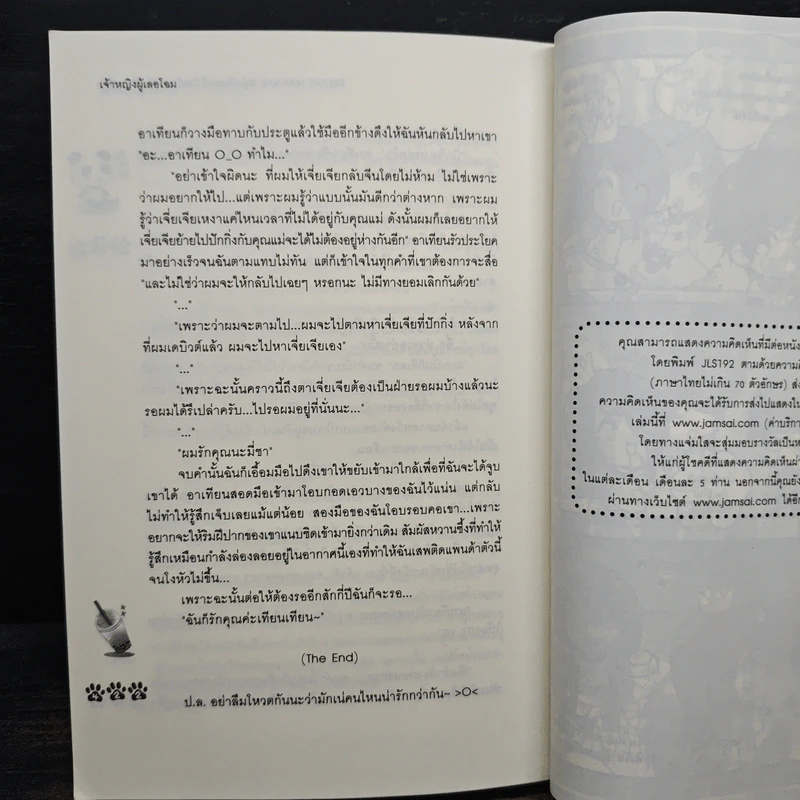 เจ้าหญิงผู้เลอโฉม
อาเทียนก็วางมือทาบกับประตูแล้วใช้มืออีกข้างดึงให้ฉันหันกลับไปหาเขา
"อะ...อาเทียน O_O ทำไม..."
"อย่าเข้าใจผิดนะ ที่ผมให้เจี่ยเจียกลับจีนโดยไม่ห้าม ไม่ใช่เพราะ
ว่าผมอยากให้ไป...แต่เพราะผมรู้ว่าแบบนั้นมันดีกว่าต่างหาก เพราะผม
รู้ว่าเจี่ยเจียเหงาแค่ไหนเวลาที่ไม่ได้อยู่กับคุณแม่ ดังนั้นผมก็เลยอยากให้
เจี่ยเจียย้ายไปปักกิ่งกับคุณแม่จะได้ไม่ต้องอยู่ห่างกันอีก" อาเทียนรัวประโยค
มาอย่างเร็วจนฉันตามแทบไม่ทัน แต่ก็เข้าใจในทุกคำที่เขาต้องการจะสื่อ
"และไม่ใช่ว่าผมจะให้กลับไปเฉยๆ หรอกนะ ไม่มีทางยอมเลิกกันด้วย"
"..."
"เพราะว่าผมจะตามไป...ผมจะไปตามหาเจี่ยเจียที่ปักกิ่ง หลังจาก
ที่ผมเดบิวต์แล้ว ผมจะไปหาเจี่ยเจียเอง"
"..."
"เพราะฉะนั้นคราวนี้ถึงตาเจี่ยเจียต้องเป็นฝ่ายรอผมบ้างแล้วนะ
รอผมได้รึเปล่าครับ...ไปรอผมอยู่ที่นั่นนะ..."
"..."
"ผมรักคุณนะมี่ชา"
จบคำนั้นฉันก็เอื้อมมือไปดึงเขาให้ขยับเข้ามาใกล้เพื่อที่ฉันจะได้จูบ
เขาได้ อาเทียนสอดมือเข้ามาโอบกอดเอวบางของฉันไว้แน่น แต่กลับ
ไม่ทำให้รู้สึกเจ็บเลยแม้แต่น้อย สองมือของฉันโอบรอบคอเขา...เพราะ
อยากจะให้ริมฝีปากของเขาแนบชิดเข้ามายิ่งกว่าเดิม สัมผัสหวานซึ้งที่ทำให้
รู้สึกเหมือนกำลังล่องลอยอยู่ในอากาศนี้เองที่ทำให้ฉันเสพติดแพนด้าตัวนี้
จนโงหัวไม่ขึ้น...
เพราะฉะนั้นต่อให้ต้องรออีกสักกี่ปีฉันก็จะรอ...
"ฉันก็รักคุณค่ะเทียนเทียน~"
(The End)
ป.ล. อย่าลืมโหวตกันนะว่ามักเน่คนไหนน่ารักกว่ากัน~ >O<
คุณสามารถแสดงความคิดเห็นที่มีต่อหนัง
โดยพิมพ์ JLS192 ตามด้วยความคิ
(ภาษาไทยไม่เกิน 70 ตัวอักษร) ส่ง
ความคิดเห็นของคุณจะได้รับการส่งไปแสดงใน
เล่มนี้ที่ www.jamsai.com (ค่าบริกา
โดยทางแจ่มใสจะสุ่มมอบรางวัลเป็นห
ให้แก่ผู้โชคดีที่แสดงความคิดเห็นผ่า
ในแต่ละเดือน เดือนละ 5 ท่าน นอกจากนี้คุณยัง
ผ่านทางเว็บไซต์ www.jamsai.com ได้อีก